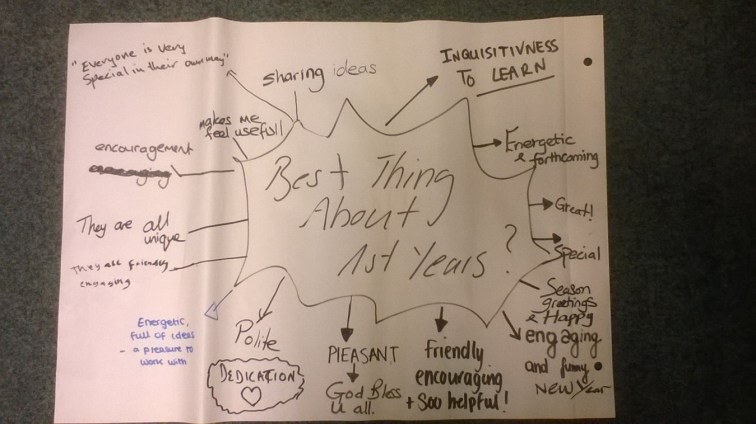 Best Thing
About
1st Years?
"Everyone is very
special in their own way"
sharing ideas
INQUISITIVNESS
TO LEARN
makes me
feel usefull
encouragement
They are all
unique
They all friendly
engaging
Energetic,
full of ideas
- a pleasure to
work with
Polite
DEDICATION
PlEASANT
God Bless
u all.
friendly
encouraging
+ soo helpful!
Energetic
& forthcoming
Great!
Special
Season
greetings
& Happy
engaging
and funny
NEW Year